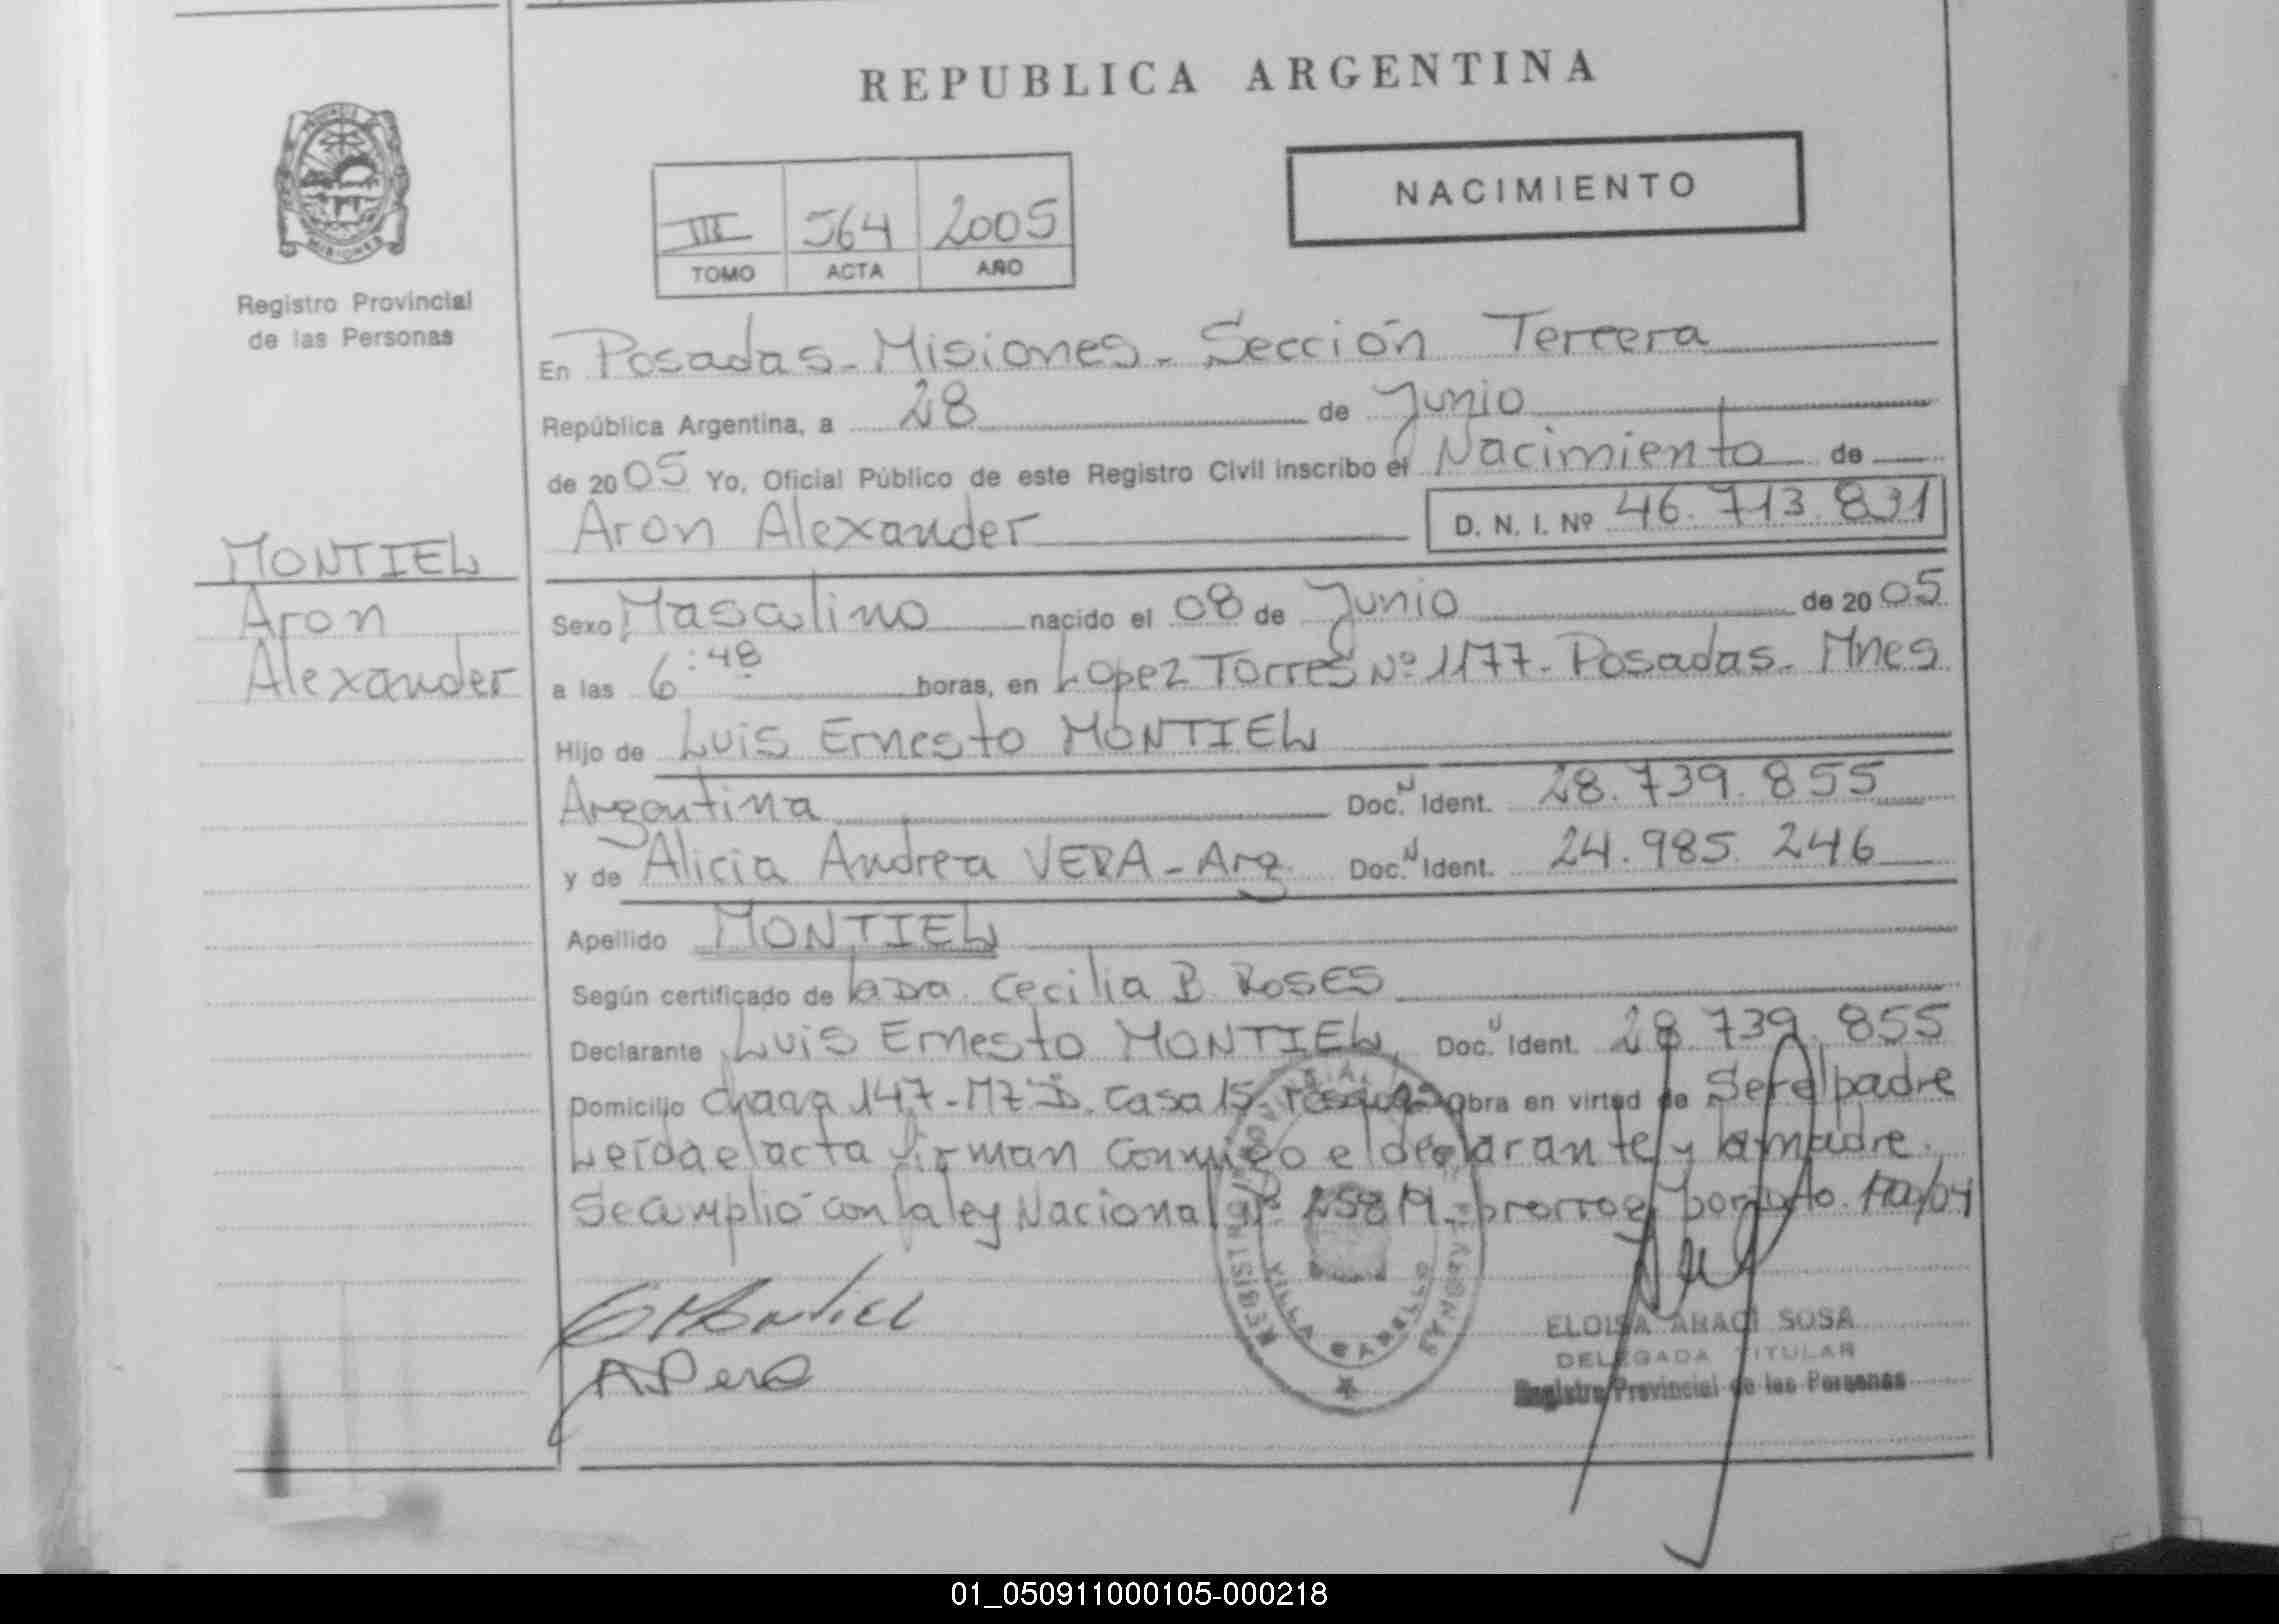 REPUBLICA ARGENTINA
NACIMIENTO
III 564 2005
TOMO ACTA AÑO
Registro Provincial
de las Personas
MONTIEL
Aron
Alexander
En Posadas - Misiones - Sección Tercera
República Argentina, a 28 de Junio
de 2005 Yo, Oficial Público de este Registro Civil inscribo el Nacimiento de
Aron Alexander D. N. I. Nº 46.713.831
Sexo Masculino nacido el 08 de Junio de 2005
a las 6:48 horas, en Lopez Torres Nº 1177 - Posadas - Mnes
Hijo de Luis Ernesto MONTIEL
Argentina Doc. Ident. 28.739.855
y de Alicia Andrea VERA - Arg Doc. Ident. 24.985.246
Apellido MONTIEL
Según certificado de la Dra. Cecilia B. ROSES
Declarante Luis Ernesto MONTIEL Doc. Ident. 28.739.855
Domicilio chacra 147 - Mz D. Casa 15 obra en virtud de Ser el padre
Leída el acta firman conmigo el declarante y la madre.
Se cumplió con la ley Nacional
VILLA CABELLO
Montiel
A Vera
ELOISA ARACI SOSA
DELEGADA TITULAR
Registro Provincial de las Personas
01_050911000105-000218